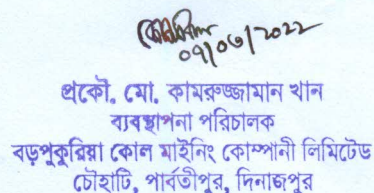 ০৭/০৬/২০২২
প্রকৌ. মো. কামরুজ্জামান খান
ব্যবস্থাপনা পরিচালক
বড়পুকুরিয়া কোল মাইনিং কোম্পানী লিমিটেড
চৌহাটি, পার্বতীপুর, দিনাজপুর